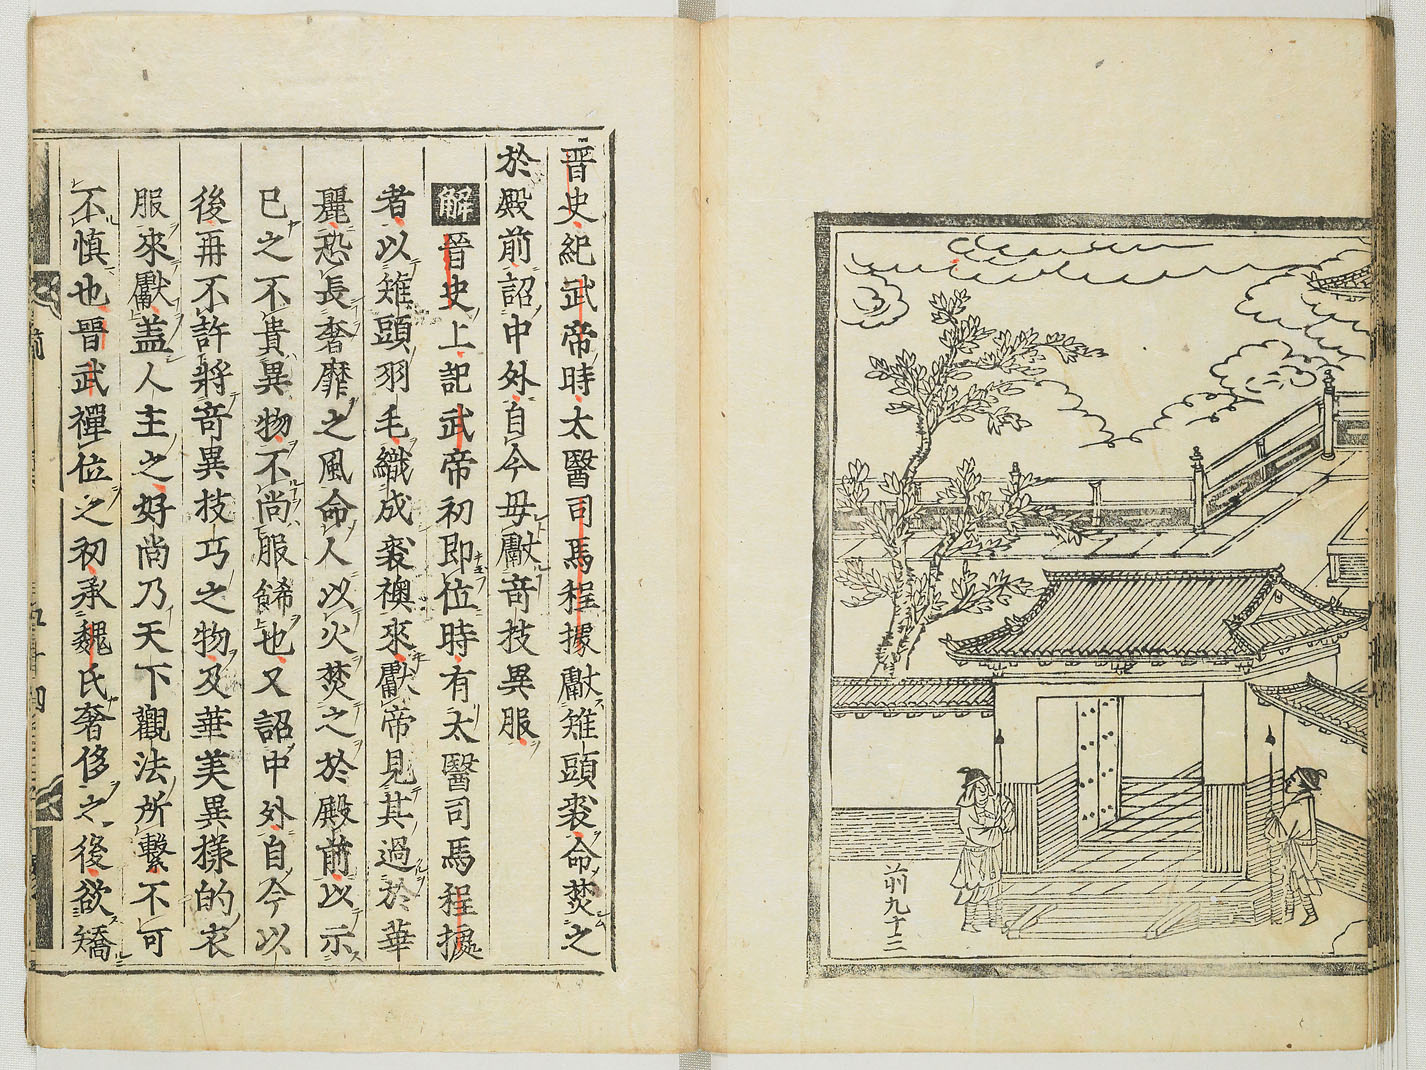 前九十三
晋史紀武帝時太醫司馬程據獻雉頭裘命焚之
於殿前詔中外自今毋獻竒技異服
解晋史上記武帝初即位時有太醫司馬程據
者以雉頭羽毛織成裘襖來獻帝見其過於華
麗恐長奢靡之風命人以火焚之於殿前以示
已之不貴異物不尚服餙也又詔中外自今以
後再不許將竒異技巧之物及華美異樣的衣
服來獻盖人主之好尚乃天下觀法所繫不可
不慎也晋武禪位之初承魏氏奢侈之後欲矯